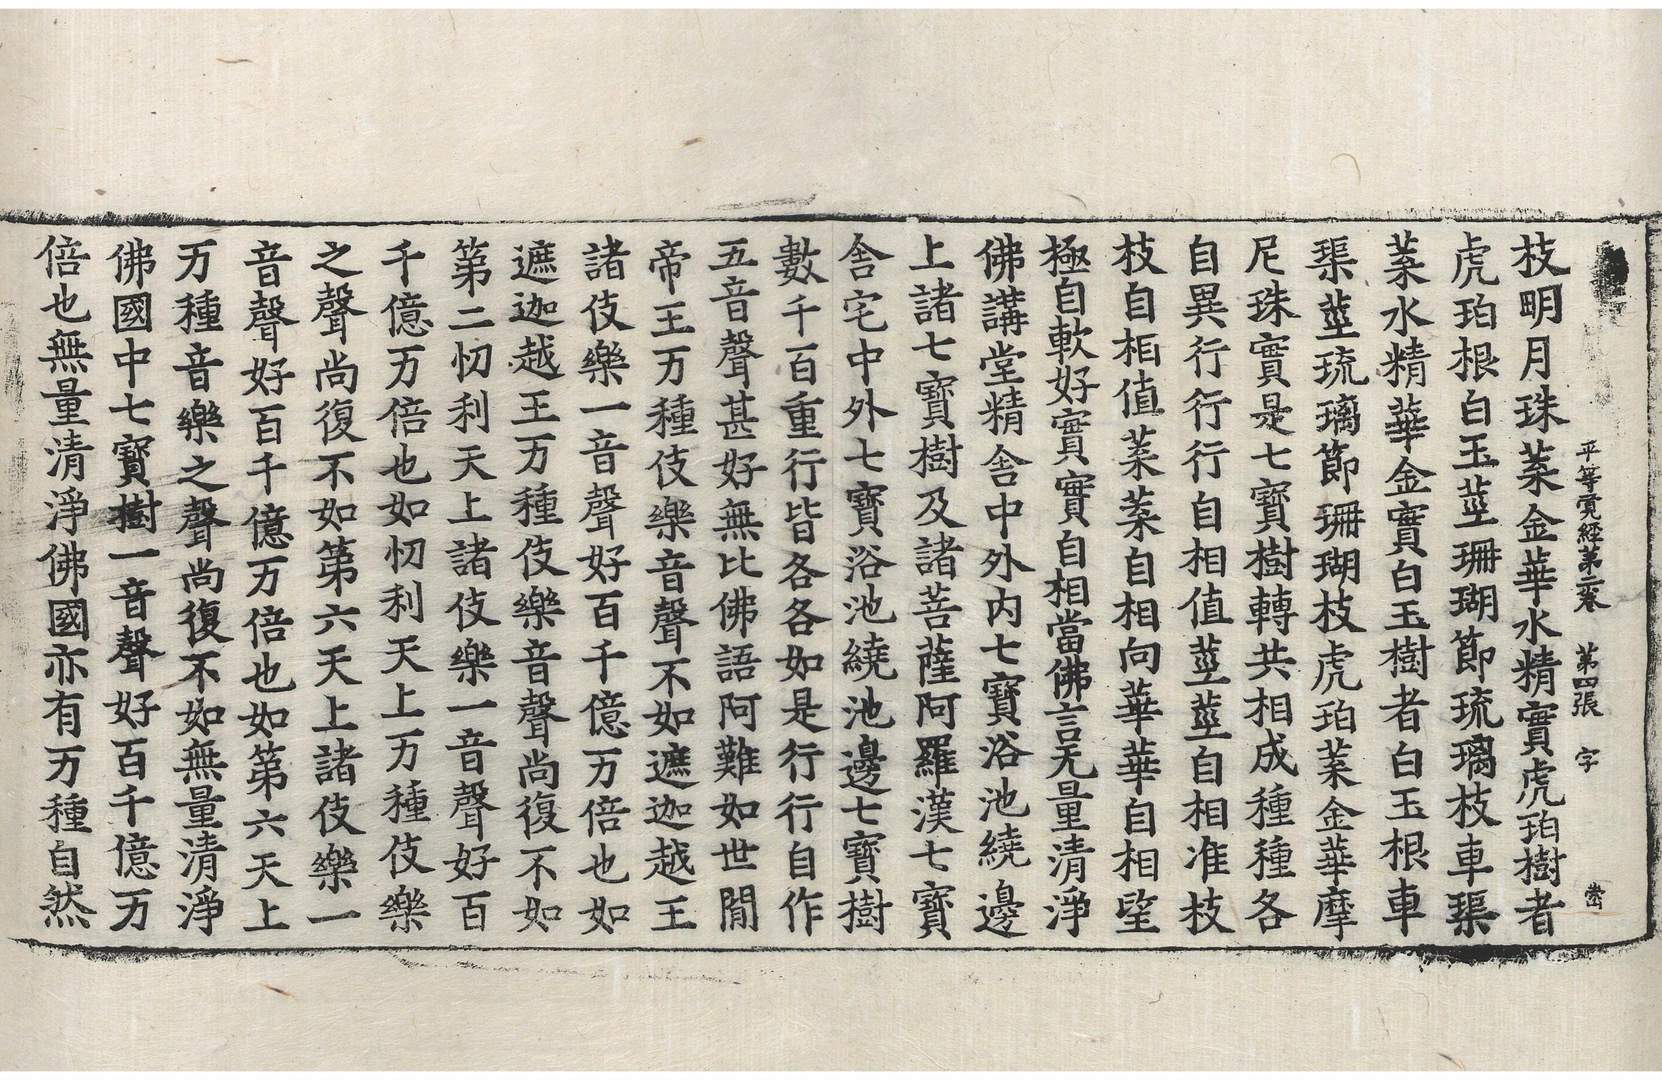 平等覺經第二卷 第四張 字
枝明月珠葉金華水精實虎珀樹者
虎珀根白玉莖珊瑚節琉璃枝車𤦲
葉水精華金實白玉樹者白玉根車
𤦲莖琉璃節珊瑚枝虎珀葉金華摩
尼珠實是七寶樹轉共相成種種各
自異行行行行自相值莖莖自相准枝
枝自相值葉葉自相向華華自相望
極自軟好實實自相當佛言无量清淨
佛講堂精舍中外內七寶浴池繞邊
上諸七寶樹及諸菩薩阿羅漢七寶
舍宅中外七寶浴池繞池邊七寶樹
數千百重行皆各各如是行行自作
五音聲甚好無比佛語阿難如世閒
帝王万種伎樂音聲不如遮迦越王
諸伎樂一音聲好百千億万倍也如
遮迦越王万種伎樂音聲尚復不如
第二忉利天上諸伎樂一音聲好百
千億万倍也如忉利天上万種伎樂
之聲尚復不如第六天上諸伎樂一
音聲好百千億万倍也如第六天上
万種音樂之聲尚復不如無量清淨
佛國中七寶樹一音聲好百千億万
倍也無量清淨佛國亦有万種自然